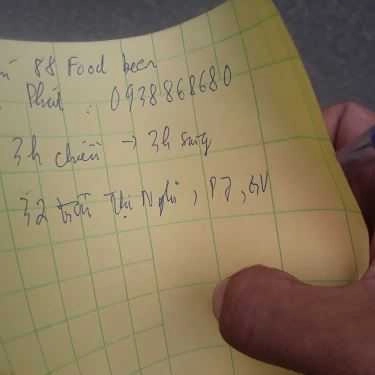 88 Food beer
Phát : 0938868680
3h chiều → 3h sáng
32 Trần Thị Nghỉ, P7, GV